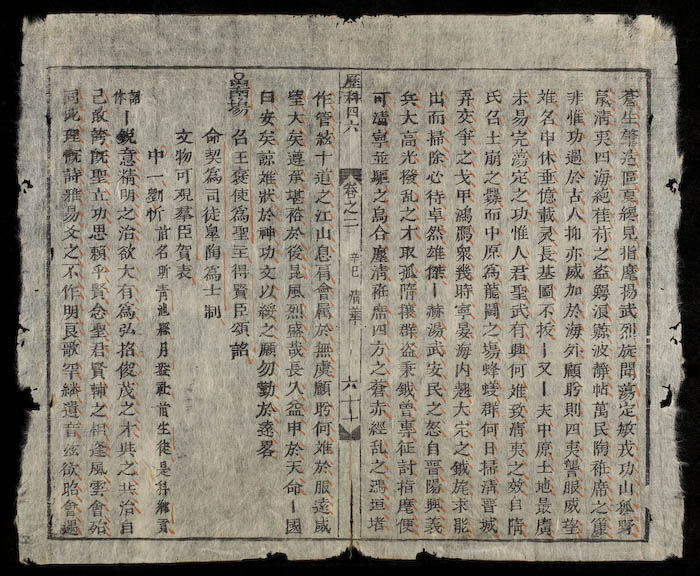 蒼生肇造區夏緫見指麾揚武烈旋閧蕩定敏戎功山無野
氛清夷四海絶萑苻之盜鷁浪驚波靜帖萬民陶袵席之
非惟功邁於古人抑亦威加於海外顧盻則四夷讋服威望
雄名中休垂億載灵長基圖不拔一又一天中原土地最廣
未易完蕩定之功惟人君聖武有興何难致清夷之效自隋
氏召土崩之釁而中原為龍鬪之塲蜂蟻群何日掃清晋城
弄交爭之戈甲鴻鴈衆幾時寕晏海内翘大定之鉞旄求能
出而掃除必待卓然雄傑一赫湯武安民之怒自晋陽興義
兵大高光撥亂之才取孤隋攘群盜秉鉞曽專征討指麾便
可清寧並驅之烏合塵清袵席四方之蒼赤經乱之馮垣堵
歷科四六
卷之二
辛巳
清華
六
十
作管紘十道之江山息肩會屬於無虞顧盻何难於服遠威
望大矣遵承堪裕於後昆風烈盛哉長久益申於天命一國
曰安矣諒难狀於神功文以綏之願勿勤於遠畧
塲
召王褒使為聖主得賢臣頌詔
命契為司徒臯陶為士制
文物可观羣臣賀表
中一劉析
前名所青池縣月盎社前生徒是科鄉貢
一銳意精明之治欲大有為弘招俊茂之才共之共治自
己敢誇旣聖立功思頼乎賢念聖君賢輔之相逢風雲會殆
同此理慨詩雅易文之不作明良歌罕継遺音玆欲昭會遇